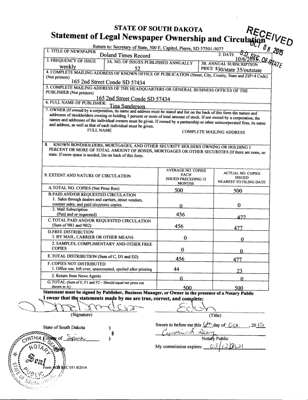 STATE OF SOUTH DAKOTA
Statement of Legal Newspaper Ownership and Circulation
RECEIVED
OCT 08 2015
S.D. SEC. OF STATE
Return to: Secretary of State, 500 E. Capitol, Pierre, SD 57501-5077
1. TITLE OF NEWSPAPER
Doland Times Record
2. DATE
3. FREQUENCY OF ISSUE
weekly
3A. NO. OF ISSUES PUBLISHED ANNUALLY
52
3B. ANNUAL SUBSCRIPTION PRICE
$30/state 35/outstate
4. COMPLETE MAILING ADDRESS OF KNOWN OFFICE OF PUBLICATION (Street, City, County, State and ZIP+4 Code) (Not printers)
165 2nd Street Conde SD 57434
5. COMPLETE MAILING ADDRESS OF THE HEADQUARTERS OR GENERAL BUSINESS OFFICES OF THE PUBLISHER (Not printer)
165 2nd Street Conde SD 57434
6. FULL NAME OF PUBLISHER:
Tina Sanderson
7. OWNER (If owned by a corporation, its name and address must be stated and list on the back of this form the names and addresses of stockholders owning or holding 1 percent or more of total amount of stock. If not owned by a corporation, the names and addresses of the individual owners must be given. If owned by a partnership or other unincorporated firm, its name and address, as well as that of each individual must be given.
FULL NAME COMPLETE MAILING ADDRESS
8. KNOWN BONDHOLDERS, MORTGAGES, AND OTHER SECURITY HOLDERS OWNING OR HOLDING 1 PERCENT OR MORE OF TOTAL AMOUNT OF BONDS, MORTGAGES OR OTHER SECURITIES (If there are none, so state. If more space is needed, list on back of this form.
9. EXTENT AND NATURE OF CIRCULATION
AVERAGE NO. COPIES EACH ISSUED PRECEDING 12 MONTHS
ACTUAL NO. COPIES ISSUED NEAREST TO FILING DATE
A. TOTAL NO. COPIES (Net Press Run) 500 500
B. PAID AND/OR REQUESTED CIRCULATION
1. Sales through dealers and carriers, street vendors, counter sales, and paid electronic copies. 0 0
2. Mail Subscription (Paid and/or requested) 456 477
C. TOTAL PAID AND/OR REQUESTED CIRCULATION (Sum of 9B1 and 9B2) 456 477
D. FREE DISTRIBUTION
1. BY MAIL, CARRIER OR OTHER MEANS 0 0
2. SAMPLES, COMPLIMENTARY AND OTHER FREE COPIES 0 0
E. TOTAL DISTRIBUTION (Sum of C, D1 and D2) 456 477
F. COPIES NOT DISTRIBUTED
1. Office use, left over, unaccounted, spoiled after printing 44 23
2. Return from News Agents 0 0
G. TOTAL (Sum of E, F1 and F2 - Should equal net press run shown in A) 500 500
Statement must be signed by Publisher, Business Manager, or Owner in the presence of a Notary Public
I swear that the statements made by me are true, correct, and complete:
(Signature) (Title)
State of South Dakota )
County of
Sworn to before me this 6th day of Oct. 2015
Notary Public
My commission expires:
NOTARY PUBLIC
Seal